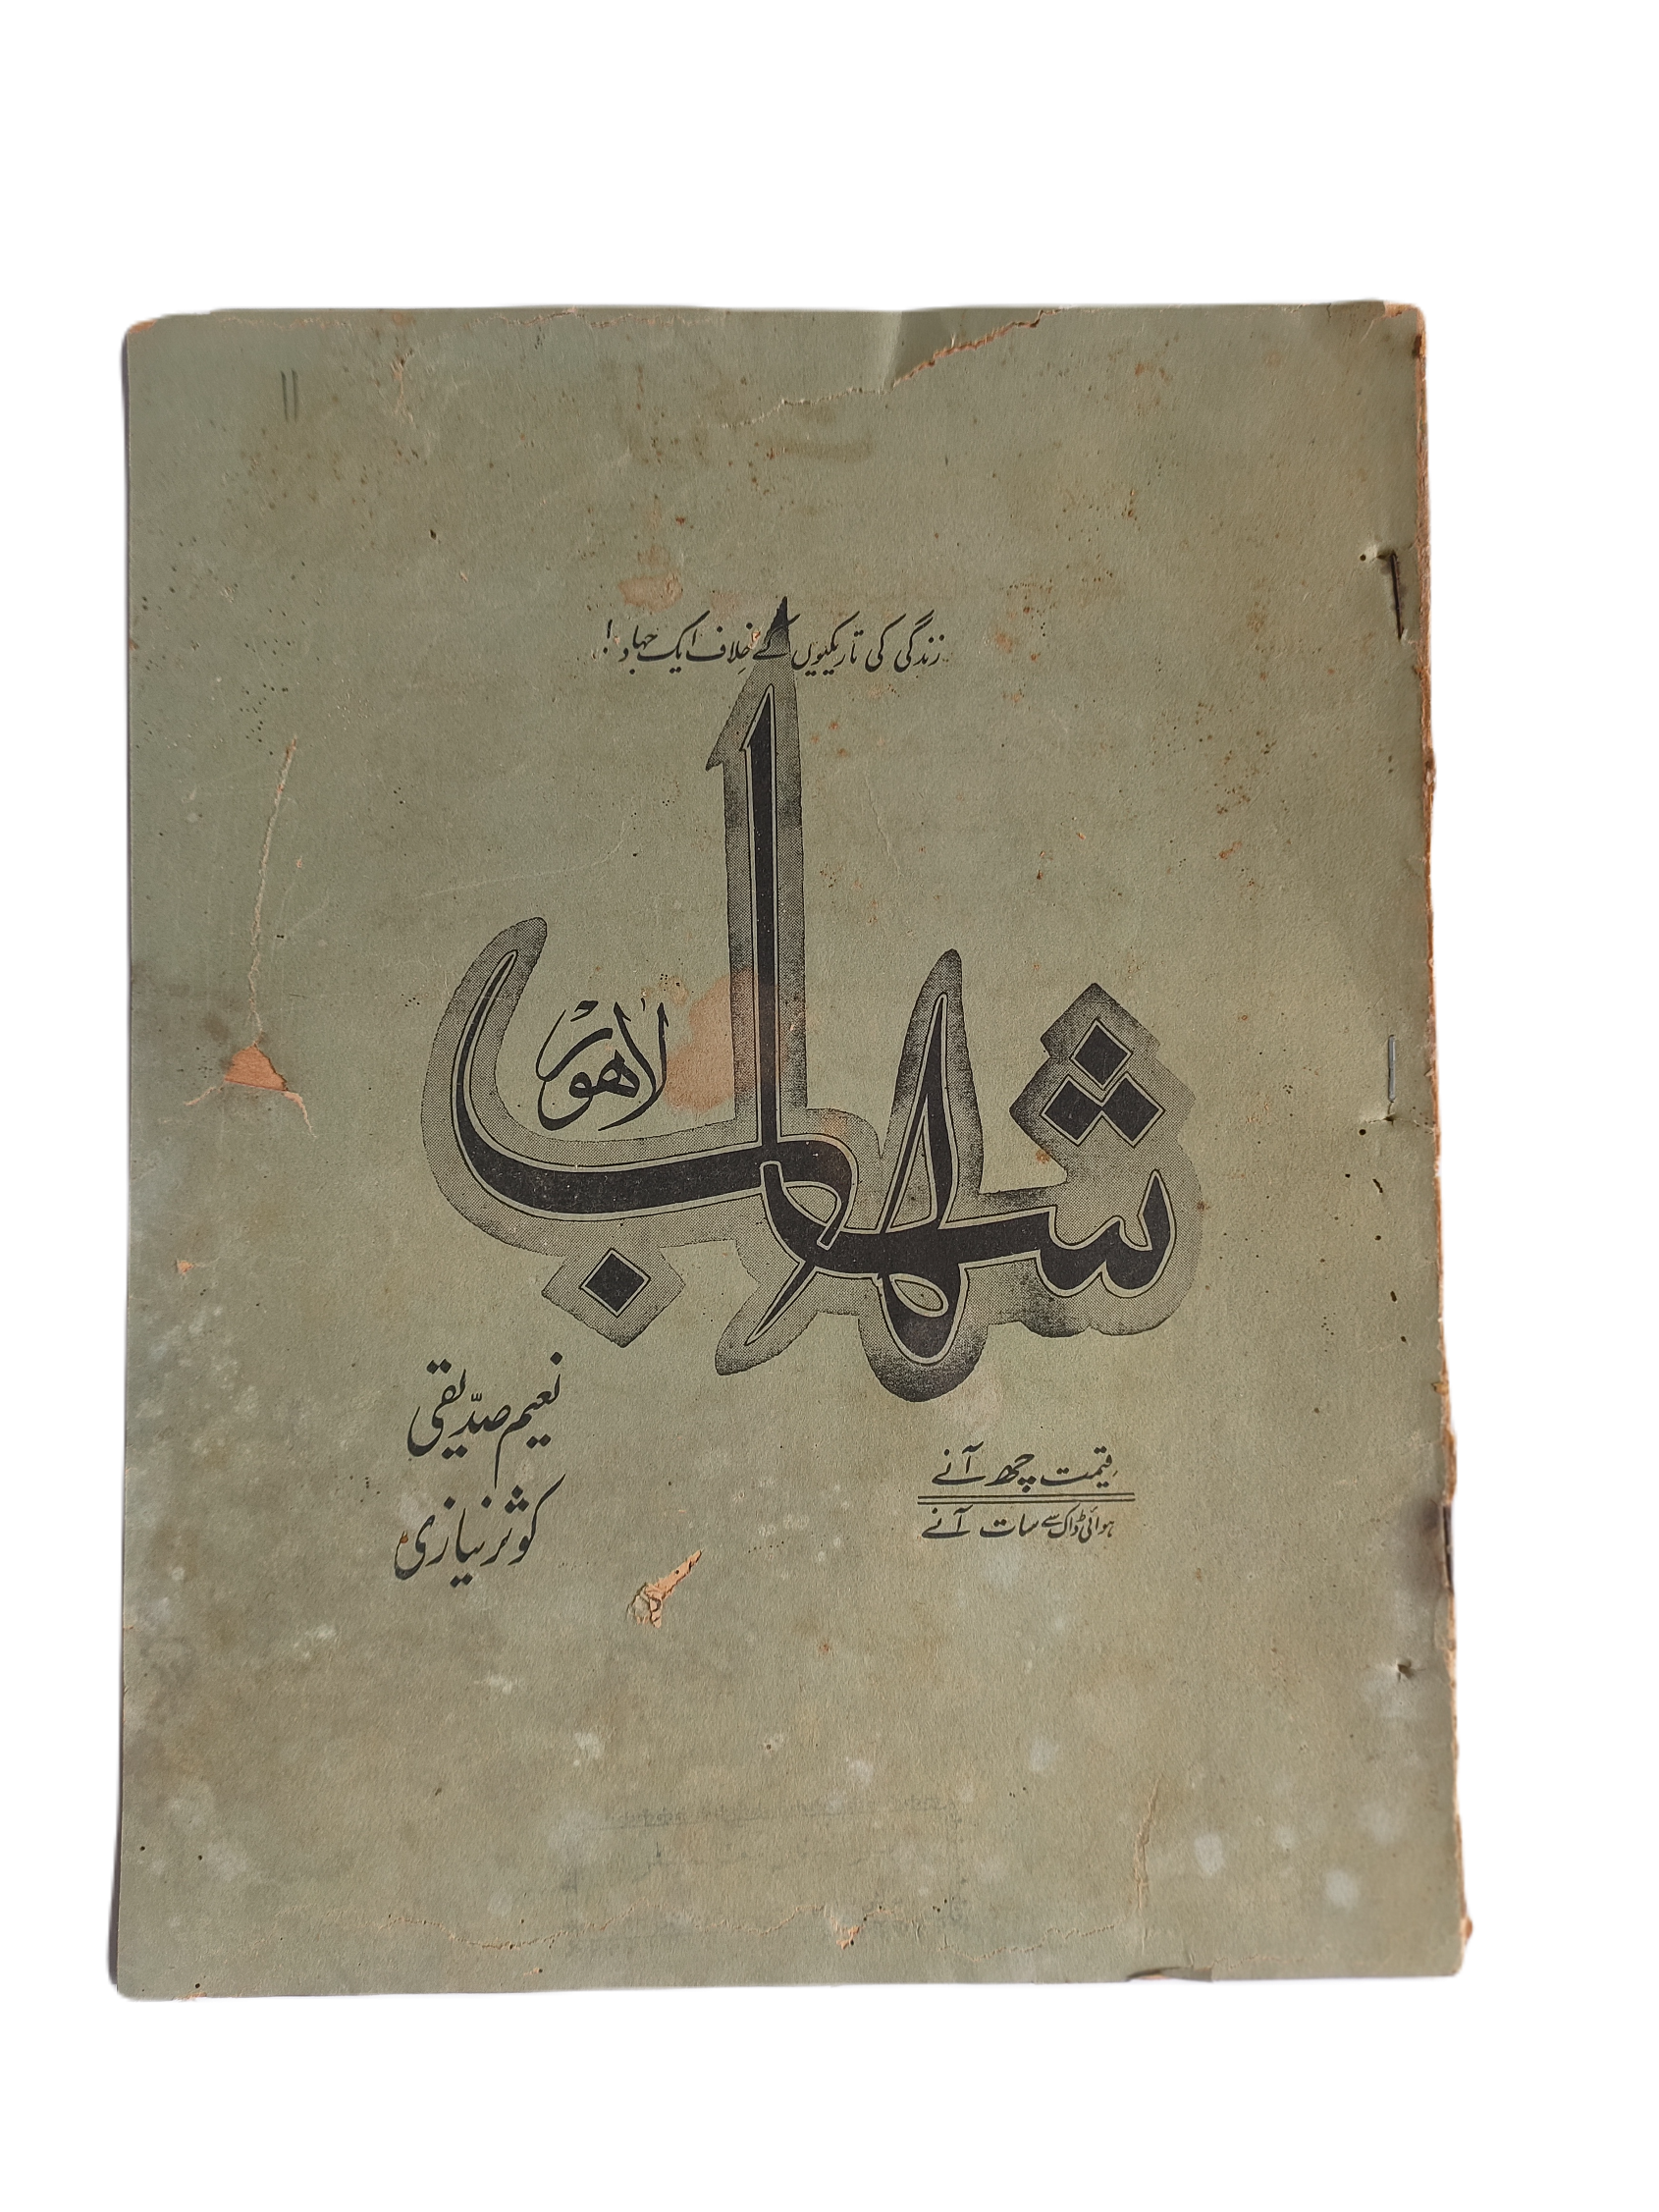 زندگی کی تاریکیوں کے خلاف ایک جہاد!
شہاب
لاهور
نعیم صدیقی
کوثر نیازی
قیمت چھ آنے
ہوائی ڈاک سے سات آنے